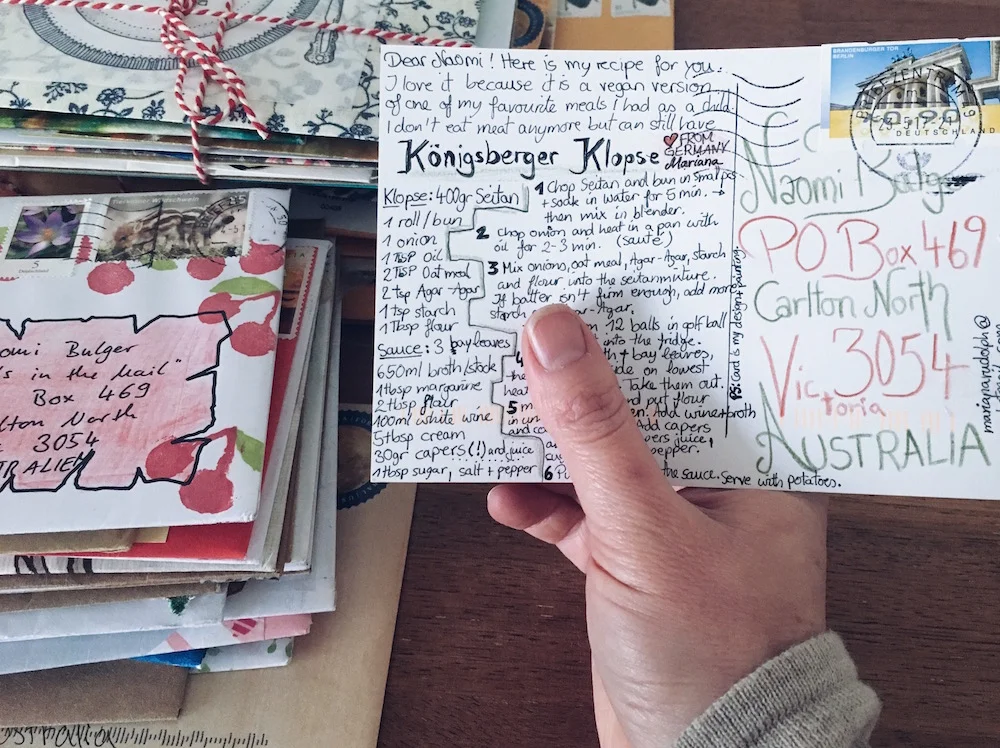 Dear Naomi! Here is my recipe for you.
I love it because it is a vegan version
of one of my favourite meals I had as a child.
I don't eat meat anymore but can still have
Königsberger Klopse
FROM
GERMANY
Mariana
Klopse: 400gr Seitan
1 roll/bun
1 onion
1 TSP Oil
2 TBSP Oatmeal
2 tsp Agar-Agar
1 tsp starch
1 Tbsp flour
Sauce: 3 bay leaves
650ml broth/stock
1 tbsp margarine
2 tbsp flour
100ml white wine
5 tbsp cream
30gr capers (!) and juice
1 tbsp sugar, salt + pepper
1 Chop Seitan and bun in small pcs
+ soak in water for 5 min. →
then mix in blender.
2 Chop onion and heat in a pan with
oil for 2-3 min. (sauté)
3 Mix onions, oat meal, Agar-Agar, starch
and flour into the seitanmixture.
If batter isn't firm enough, add more
starch Agar-Agar.
12 balls in golf ball
into the fridge.
+ bay leaves,
on lowest
Take them out.
put flour
Add wine + broth
Add capers
juice,
pepper.
the sauce. Serve with potatoes.
PS: Card is my design + painting
BRANDENBURGER TOR
BERLIN
BRIEFZENTRUM
DEUTSCHLAND
Naomi Bulger
PO Box 469
Carlton North
Victoria 3054
AUSTRALIA
5
Deutschland
omi Bulger
s in the Mail"
Box 469
lton North
3054
TRALIEN